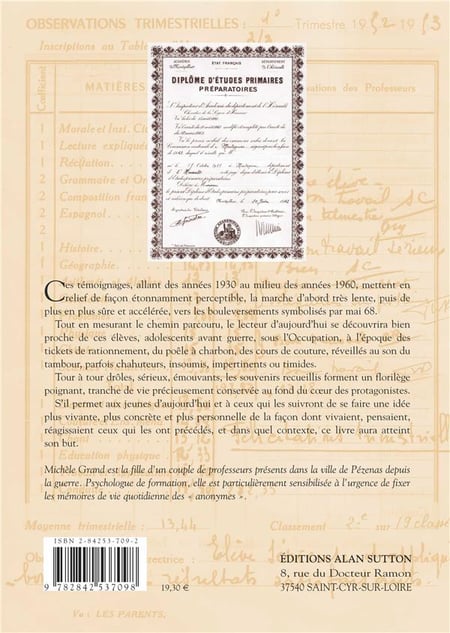 OBSERVATIONS TRIMESTRIELLES : 1º Trimestre 1952-1953
Inscriptions au Tableau
Coefficient
MATIÈRES
ations des Professeurs
ACADÉMIE
de Montpellier
ÉTAT FRANÇAIS
DÉPARTEMENT
de l'Hérault
DIPLÔME D'ÉTUDES PRIMAIRES
PRÉPARATOIRES
1 Morale et Inst.
1 Lecture expliquée
1 Récitation
2 Grammaire et
2 Composition fran
2 Espagnol
1 Histoire
1 Géographie
Ces témoignages, allant des années 1930 au milieu des années 1960, mettent en
relief de façon étonnamment perceptible, la marche d'abord très lente, puis de
plus en plus sûre et accélérée, vers les bouleversements symbolisés par mai 68.
Tout en mesurant le chemin parcouru, le lecteur d'aujourd'hui se découvrira bien
proche de ces élèves, adolescents avant guerre, sous l'Occupation, à l'époque des
tickets de rationnement, du poêle à charbon, des cours de couture, réveillés au son du
tambour, parfois chahuteurs, insoumis, impertinents ou timides.
Tour à tour drôles, sérieux, émouvants, les souvenirs recueillis forment un florilège
poignant, tranche de vie précieusement conservée au fond du cœur des protagonistes.
S'il permet aux jeunes d'aujourd'hui et à ceux qui les suivront de se faire une idée
plus vivante, plus concrète et plus personnelle de la façon dont vivaient, pensaient,
réagissaient ceux qui les ont précédés, et dans quel contexte, ce livre aura atteint
son but.
Éducation physique
Michèle Grand est la fille d'un couple de professeurs présents dans la ville de Pézenas depuis
la guerre. Psychologue de formation, elle est particulièrement sensibilisée à l'urgence de fixer
les mémoires de vie quotidienne des « anonymes ».
Moyenne trimestrielle : 13,44 Classement : 2e sur 19 classés
ISBN 2-84253-709-2
9 782842 537098
19,30 €
ÉDITIONS ALAN SUTTON
8, rue du Docteur Ramon
37540 SAINT-CYR-SUR-LOIRE
Vu: LES PARENTS,